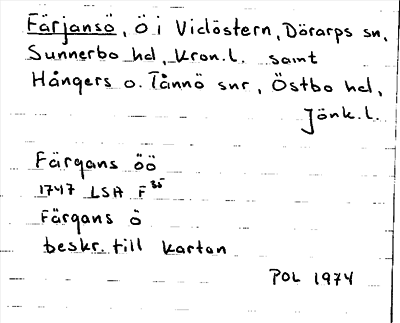 Färjansö, Ö i Vidöstern, Dörarps sn,
Sunnerbo hd, Kron.l. samt
Hångers o. Tånnö snr, Östbo hd,
Jönk.l.
Färgans öö
1747 LSA F 35
Färgans ö
beskr. till kartan
POL 1974